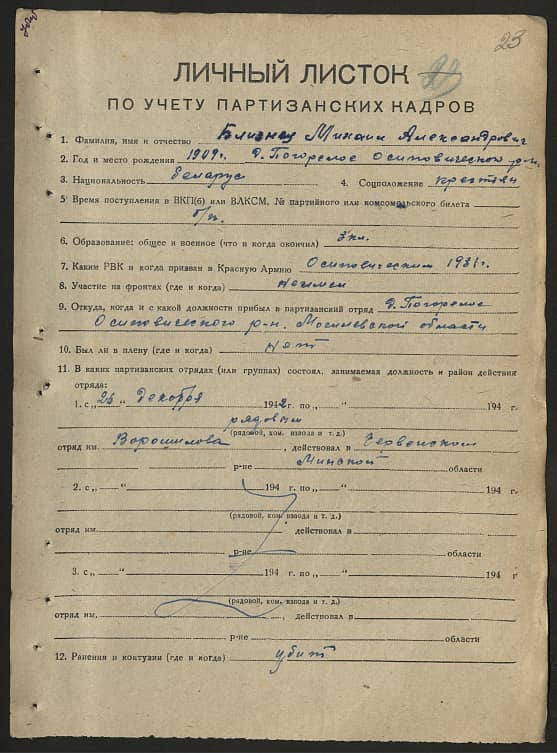 23
ЛИЧНЫЙ ЛИСТОК
ПО УЧЕТУ ПАРТИЗАНСКИХ КАДРОВ
1. Фамилия, имя и отчество Близнец Михаил Александрович
2. Год и место рождения 1909 г. д. Погорелое Осиповического р-н.
3. Национальность беларус 4. Соцположение крестян
5 Время поступления в ВКП(б) или ВЛКСМ, № партийного или комсомольского билета
б/п.
6. Образование: общее и военное (что и когда окончил) 3 кл.
7. Каким РВК и когда призван в Красную Армию Осиповическим 1931 г.
8. Участие на фронтах (где и когда)
9. Откуда, когда и с какой должности прибыл в партизанский отряд д. Погорелое
Осиповического р-н. Могилевской области
10. Был ли в плену (где и когда) нет
11. В каких партизанских отрядах (или группах) состоял, занимаемая должность и район действия
отряда:
1. с „ 25 “ декабря 1942 г. по „ “ 194 г.
рядовым
(рядовой, ком. взвода и т. д.)
отряд им. Ворошилова, действовал в Червенском
р-не Минской области
2. с „ “ 194 г. по „ “ 194 г.
(рядовой, ком. взвода и т. д.)
отряд им. действовал в
р-не области
3. с „ “ 194 г. по „ “ 194 г
(рядовой, ком. взвода и т. д.)
отряд им. , действовал в
р-не области
12. Ранения и контузии (где и когда) убит